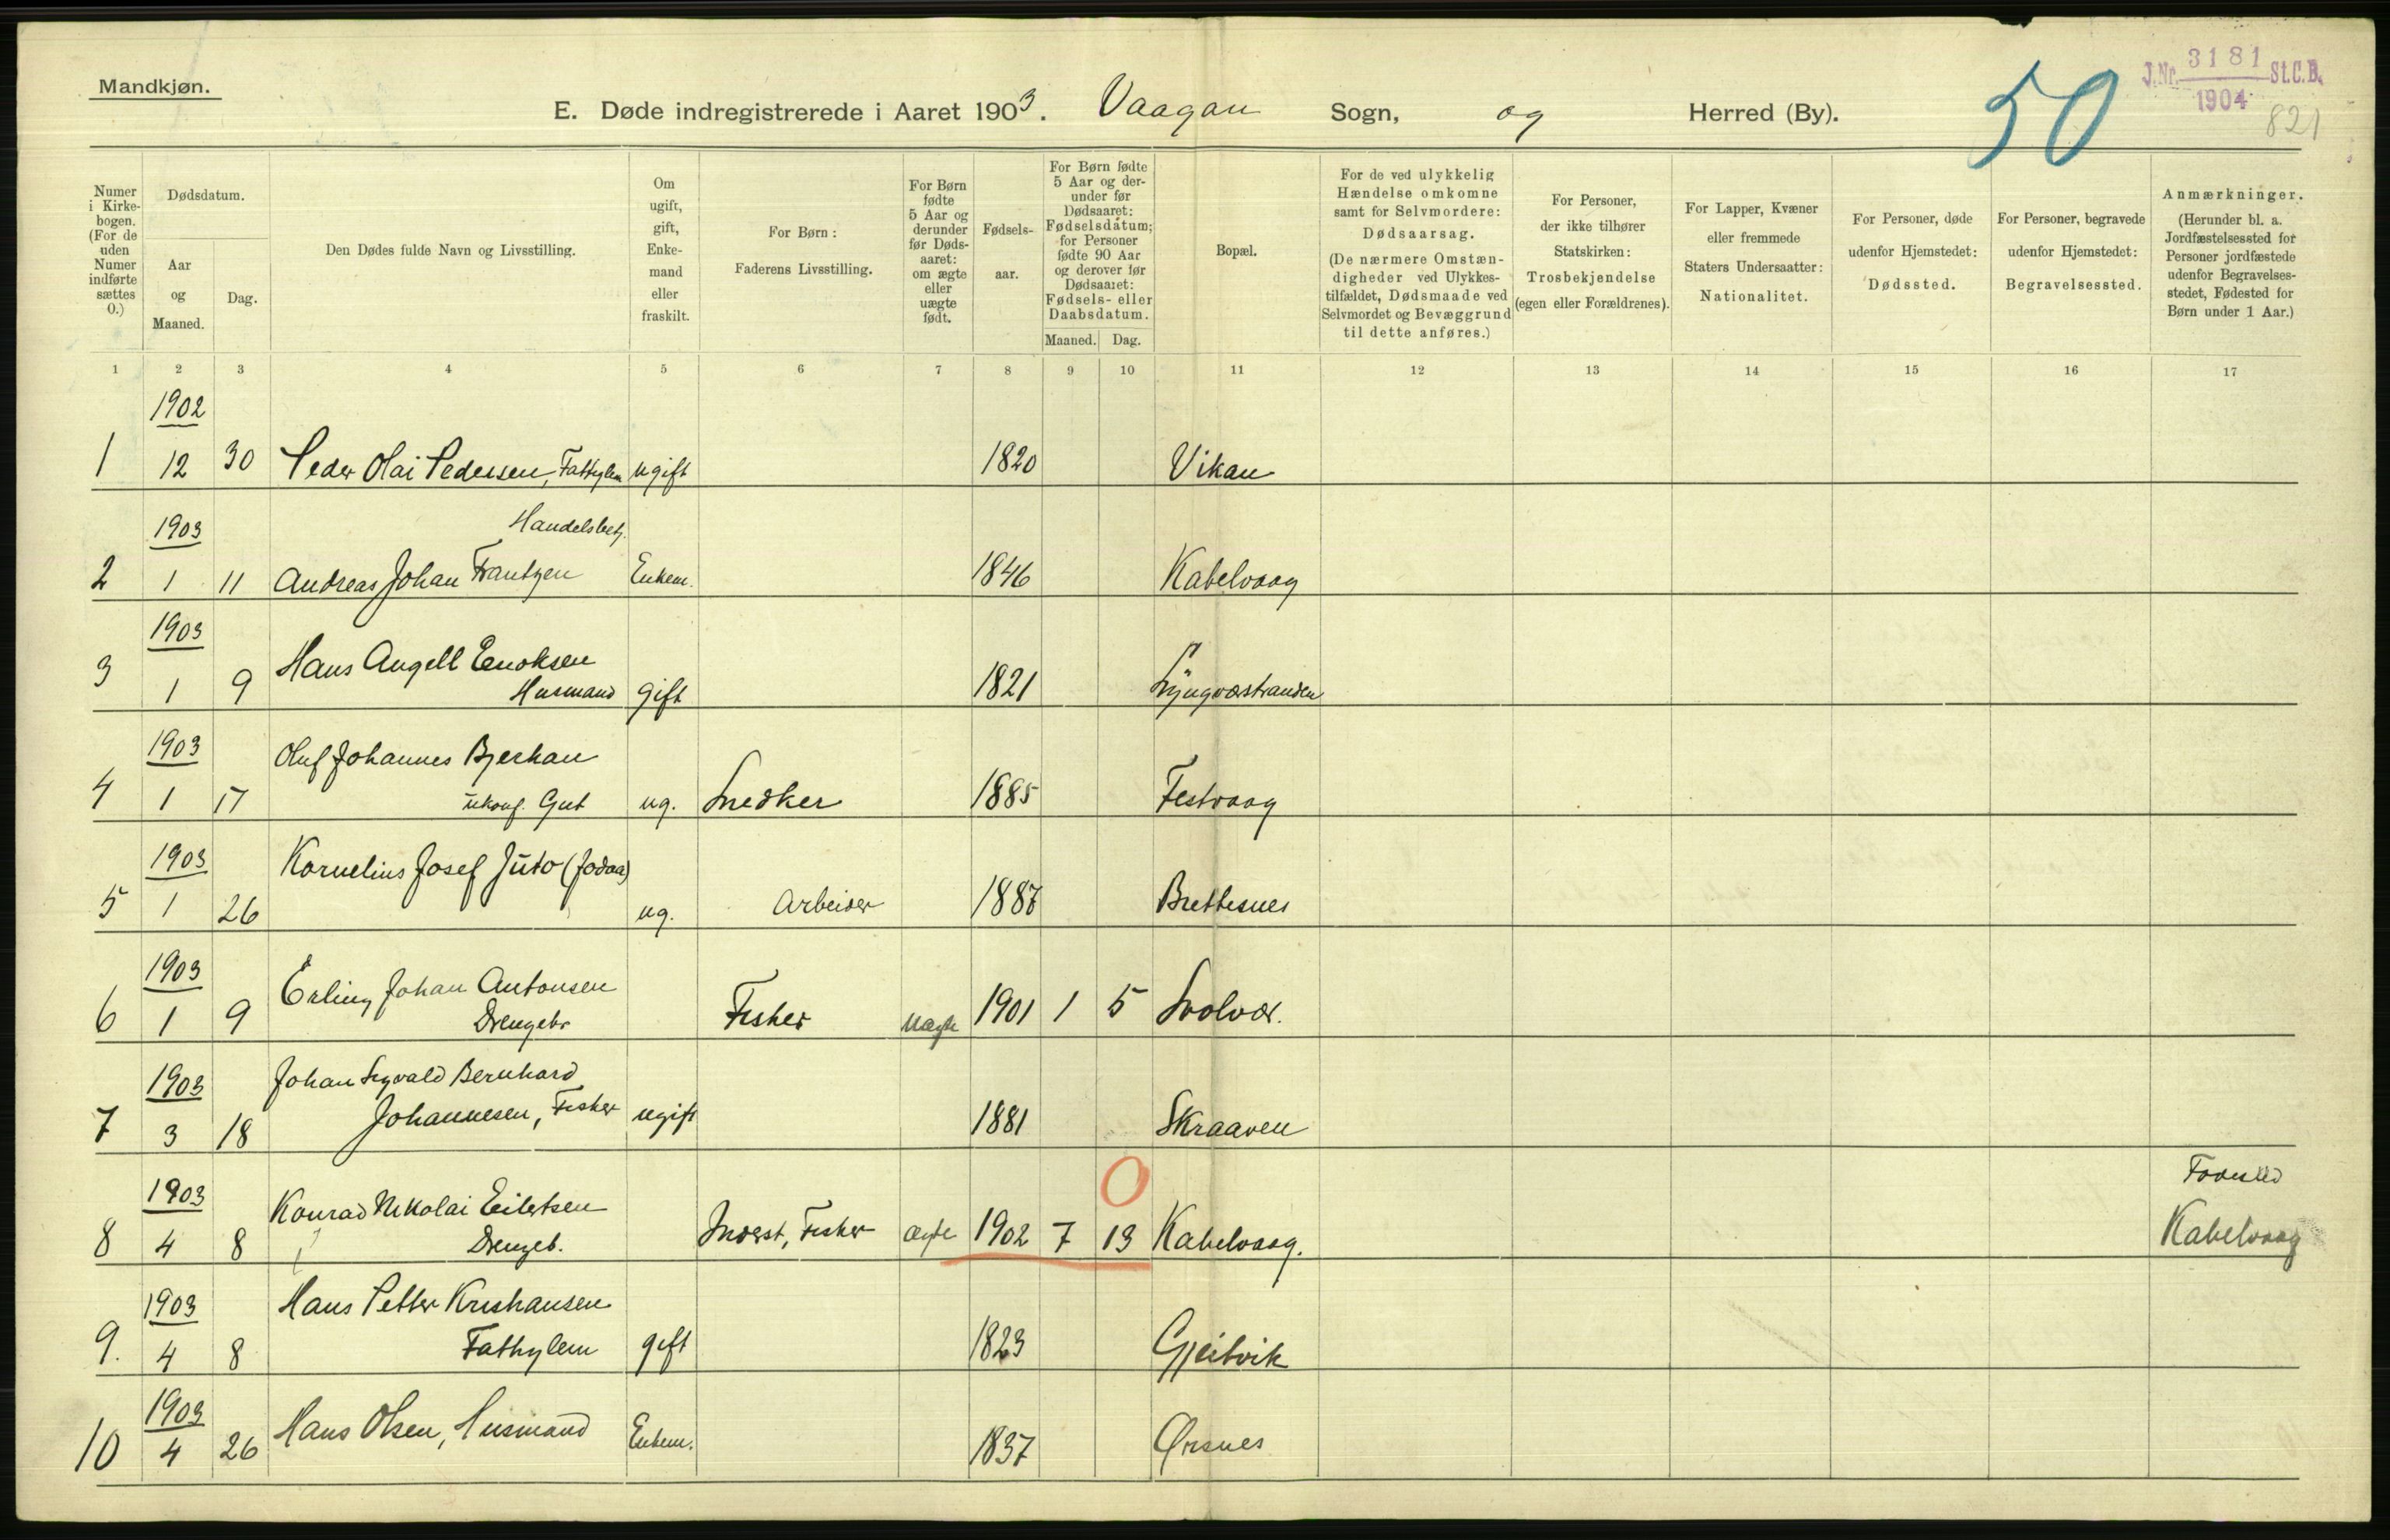 Mandkjøn.
E. Døde indregistrerede i Aaret 1903. Vaagan Sogn, og Herred (By).
50
J.Nr. 3181 St.C.B.
1904
821
Numer i Kirkebogen. (For de uden Numer indførte sættes 0.)
Dødsdatum.
Aar og Maaned.
Dag.
Den Dødes fulde Navn og Livsstilling.
Om ugift, gift, Enkemand eller fraskilt.
For Børn: Faderens Livsstilling.
For Børn fødte 5 Aar og derunder før Dødsaaret: om ægte eller uægte født.
Fødselsaar.
For Børn fødte 5 Aar og derunder før Dødsaaret: Fødselsdatum; for Personer fødte 90 Aar og derover før Dødsaaret: Fødsels- eller Daabsdatum.
Maaned. Dag.
Bopæl.
For de ved ulykkelig Hændelse omkomne samt for Selvmordere: Dødsaarsag. (De nærmere Omstændigheder ved Ulykkestilfældet, Dødsmaade ved Selvmordet og Bevæggrund til dette anføres.)
For Personer, der ikke tilhører Statskirken: Trosbekjendelse (egen eller Forældrenes).
For Lapper, Kvæner eller fremmede Staters Undersaatter: Nationalitet.
For Personer, døde udenfor Hjemstedet: Dødssted.
For Personer, begravede udenfor Hjemstedet: Begravelsessted.
Anmærkninger. (Herunder bl. a. Jordfæstelsessted for Personer jordfæstede udenfor Begravelsesstedet, Fødested for Børn under 1 Aar.)
1 2 3 4 5 6 7 8 9 10 11 12 13 14 15 16 17
1902
1 12 30 Peder Olai Pedersen, Fattiglem ugift 1820 Vikan
1903 Handelsbetj.
2 1 11 Andreas Johan Frantzen Enkem. 1846 Kabelvaag
1903 Hans Angell Enoksen
3 1 9 Husmand gift 1821 Lyngværstranden
1903 Oluf Johannes Bjerkan
4 1 17 ukonf. Gut ug. Snedker 1885 Festvaag
1903 Kornelius Josef Juto (Jodaa)
5 1 26 ug. Arbeider 1887 Brettesnes
1903 Erling Johan Antonsen
6 1 9 Drengebr Fisker uægte 1901 1 5 Svolvær.
1903 Johan Sigvald Bernhard
7 3 18 Johannesen, Fisker ugift 1881 Skraaven
0
1903 Konrad Nikolai Eilertsen Fødested
8 4 8 Drengeb. Inderst, Fisker ægte 1902 7 13 Kabelvaag. Kabelvaag
1903 Hans Petter Kristiansen
9. 4 8 Fattiglem gift 1823 Gjeitvik
1903
10 4 26 Hans Olsen, Husmand Enkem. 1837 Ørsnes